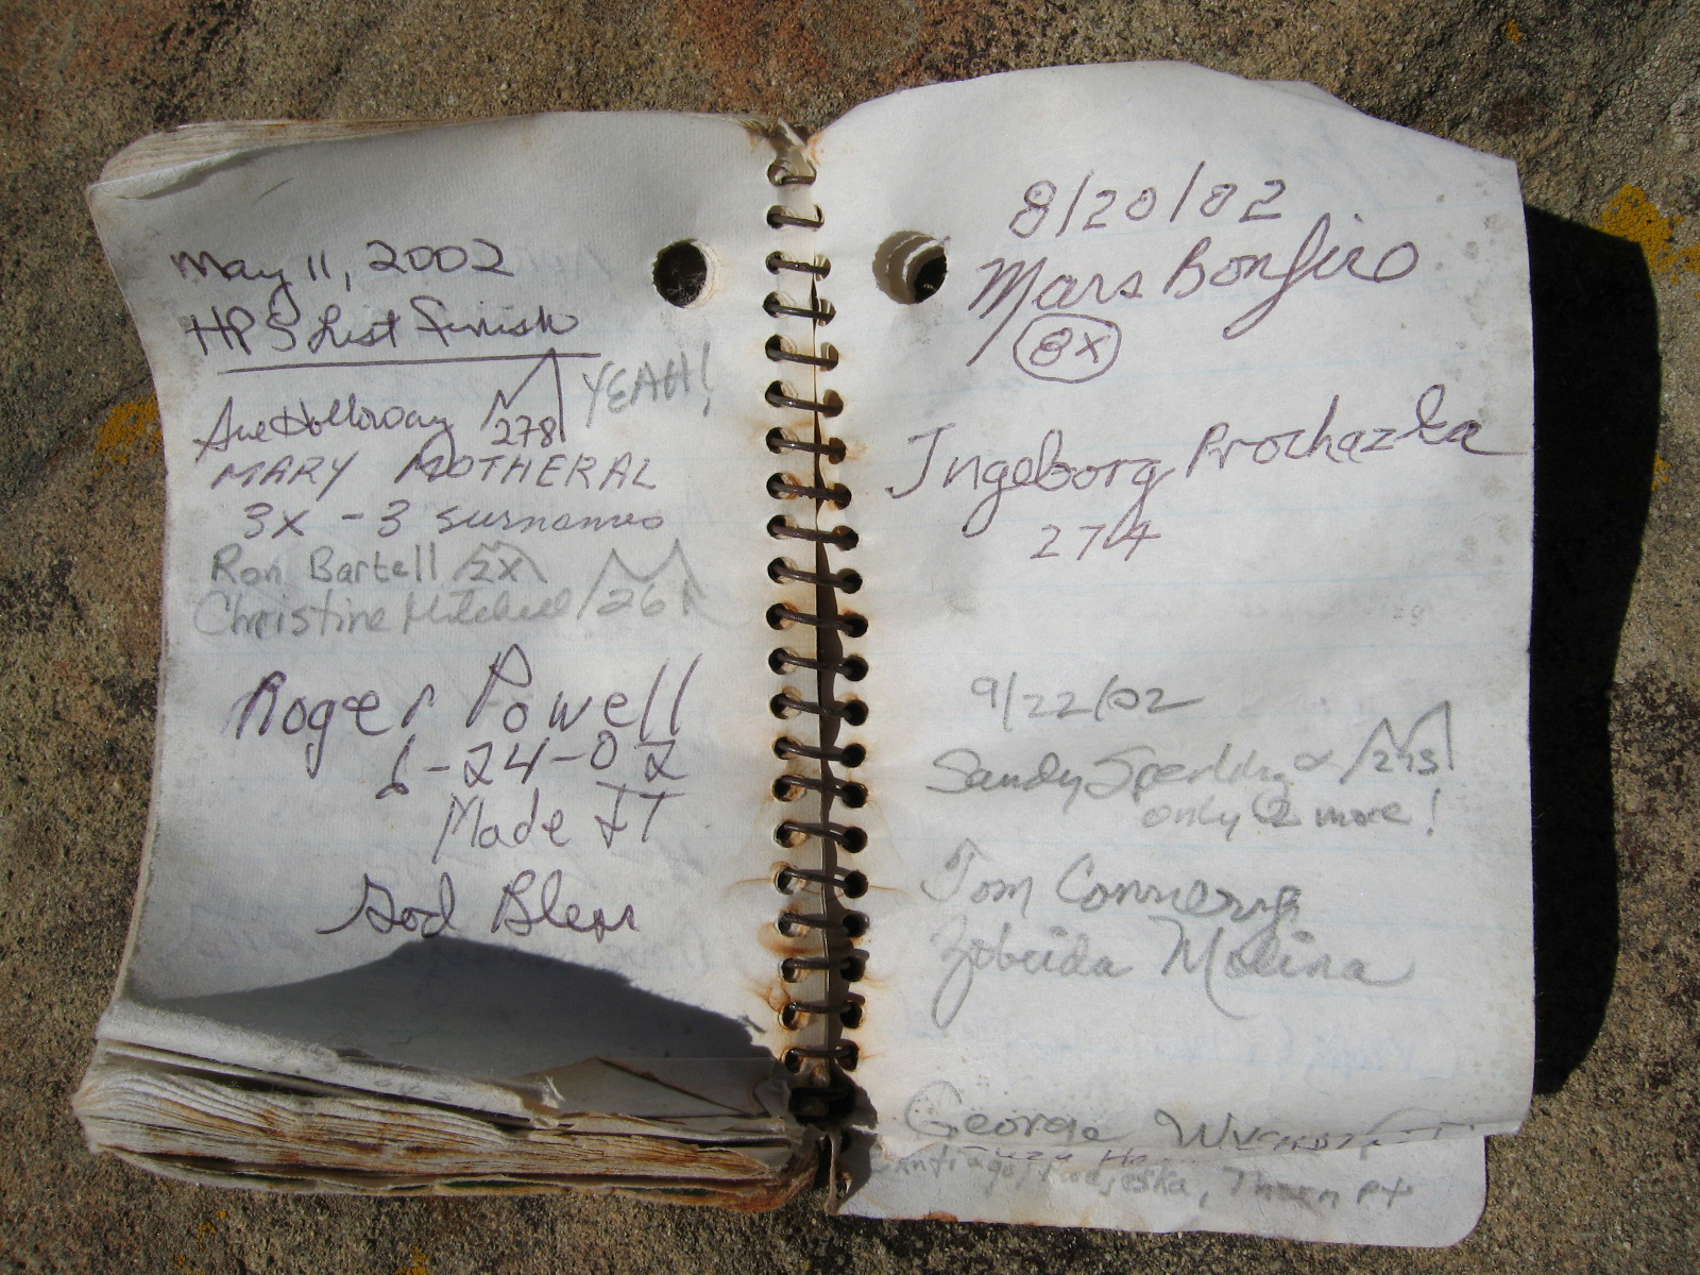 May 11, 2002
HPS List Finish
Sue Holloway 278 YEAH!
MARY MOTHERAL
3x - 3 surnames
Ron Bartell 2x
Christine Mitchell 26
Roger Powell
6-24-02
Made IT
God Bless
8/20/02
Mars Bonfire
8x
Ingeborg Prochazka
274
9/22/02
Sandy Sperling 273
only 2 more!
Tom Connery
Zobeida Molina
George
Modjeska,